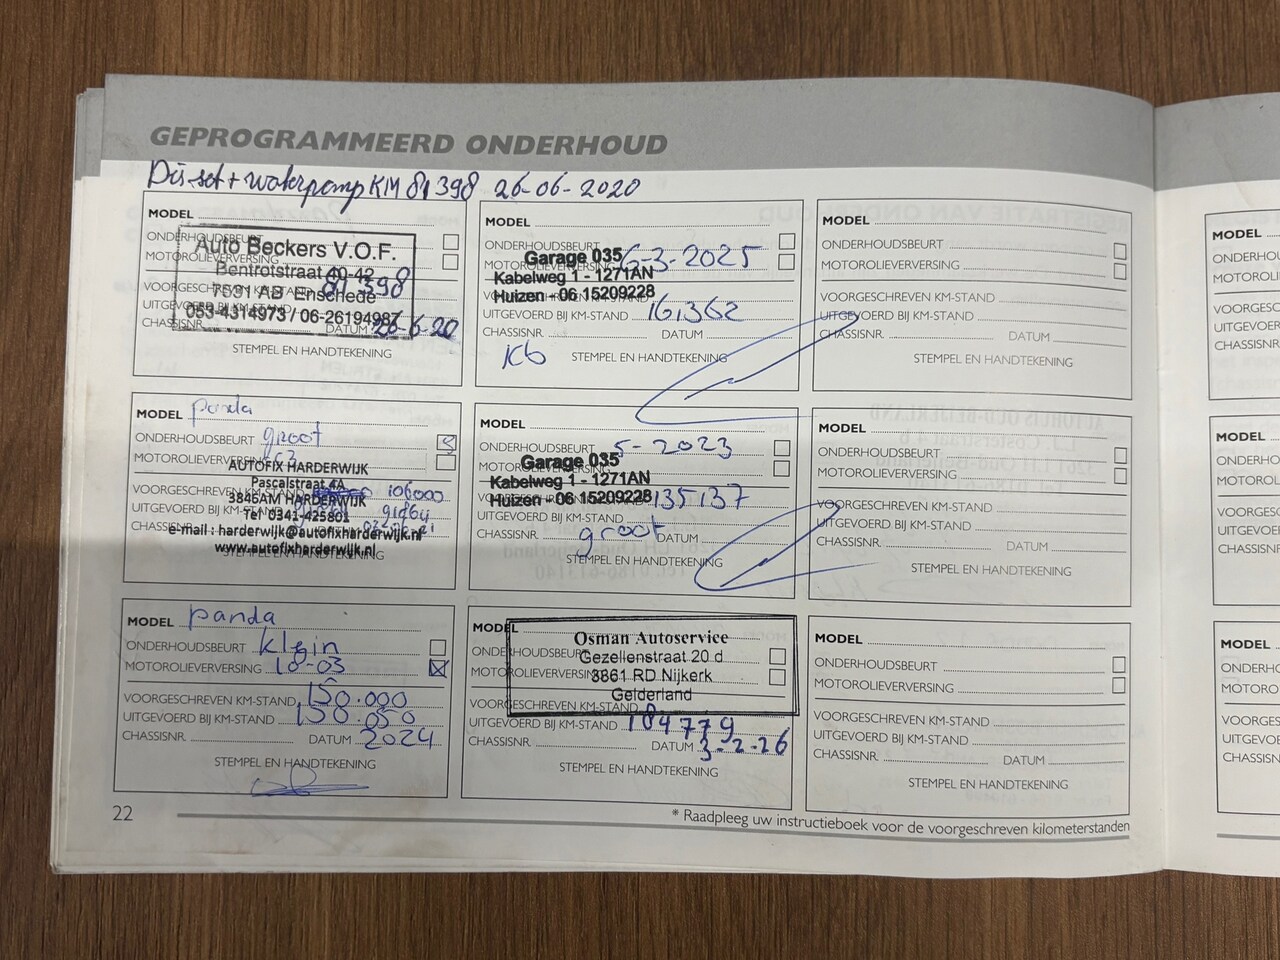 GEPROGRAMMEERD ONDERHOUD
Dis.set + waterpomp KM 81398 26-06-2020
MODEL
ONDERHOUDSBEURT
MOTOROLIEVERVERSING
VOORGESCHREVEN KM-STAND
81 398
UITGEVOERD BIJ KM-STAND
CHASSISNR. DATUM 26-6-20
Auto Beckers V.O.F.
Bentrotstraat 40-42
7531 AB Enschede
053-4314973 / 06-26194987
STEMPEL EN HANDTEKENING
MODEL
ONDERHOUDSBEURT 6-3-2025
MOTOROLIEVERVERSING
Garage 035
Kabelweg 1 - 1271AN
Huizen - 06 15209228
UITGEVOERD BIJ KM-STAND 161,362
CHASSISNR. DATUM
Kb STEMPEL EN HANDTEKENING
MODEL
ONDERHOUDSBEURT
MOTOROLIEVERVERSING
VOORGESCHREVEN KM-STAND
UITGEVOERD BIJ KM-STAND
CHASSISNR. DATUM
STEMPEL EN HANDTEKENING
MODEL panda
ONDERHOUDSBEURT groot
MOTOROLIEVERVERSING
VOORGESCHREVEN KM-STAND 106000
UITGEVOERD BIJ KM-STAND
CHASSISNR.
AUTOFIX HARDERWIJK
Pascalstraat 4A
3846AM HARDERWIJK
Tel 0341-425801
e-mail : harderwijk@autofixharderwijk.nl
www.autofixharderwijk.nl
STEMPEL EN HANDTEKENING
MODEL
ONDERHOUDSBEURT 5-2023
MOTOROLIEVERVERSING
Garage 035
Kabelweg 1 - 1271AN
Huizen - 06 15209228
135137
UITGEVOERD BIJ KM-STAND
CHASSISNR. groot DATUM
STEMPEL EN HANDTEKENING
MODEL
ONDERHOUDSBEURT
MOTOROLIEVERVERSING
VOORGESCHREVEN KM-STAND
UITGEVOERD BIJ KM-STAND
CHASSISNR. DATUM
STEMPEL EN HANDTEKENING
MODEL panda
ONDERHOUDSBEURT klein
MOTOROLIEVERVERSING 10-03
VOORGESCHREVEN KM-STAND 150.000
UITGEVOERD BIJ KM-STAND 150.050
CHASSISNR. DATUM 2024
STEMPEL EN HANDTEKENING
MODEL
ONDERHOUDSBEURT
MOTOROLIEVERVERSING
Osman Autoservice
Gezellenstraat 20 d
3861 RD Nijkerk
Gelderland
VOORGESCHREVEN KM-STAND
UITGEVOERD BIJ KM-STAND 184779
CHASSISNR. DATUM 3-2-26
STEMPEL EN HANDTEKENING
MODEL
ONDERHOUDSBEURT
MOTOROLIEVERVERSING
VOORGESCHREVEN KM-STAND
UITGEVOERD BIJ KM-STAND
CHASSISNR. DATUM
STEMPEL EN HANDTEKENING
22
* Raadpleeg uw instructieboek voor de voorgeschreven kilometerstanden
MODEL
CHASSISNR.
MODEL
CHASSISNR.
MODEL
CHASSISNR.